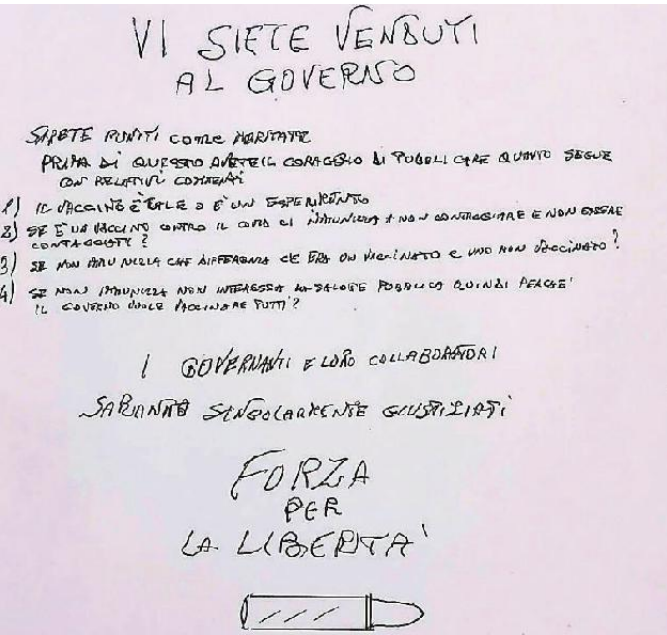 VI SIETE VENDUTI
AL GOVERNO
SARETE PUNITI COME MERITATE
PRIMA DI QUESTO AVETE IL CORAGGIO DI PUBBLICARE QUANTO SEGUE
CON RELATIVI COMMENTI
1) IL VACCINO È TALE O E' UN ESPERIMENTO
2) SE È UN VACCINO CONTRO IL COVID CI IMMUNIZZA A NON CONTAGGIARE E NON ESSERE
CONTAGGIATI ?
3) SE NON IMMUNIZZA CHE DIFFERENZA CE FRA UN VACCINATO E UNO NON VACCINATO ?
4) SE NON IMMUNIZZA NON INTERESSA LA SALUTE PUBBLICA QUINDI PERCHE'
IL GOVERNO VUOLE VACCINARE TUTTI ?
I GOVERNANTI E LORO COLLABORATORI
SARANNO SINGOLARMENTE GIUSTIZIATI
FORZA
PER
LA LIBERTA'